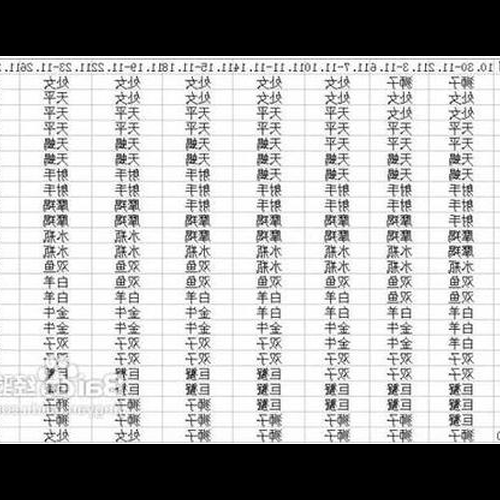 10.30-11.2 11.3-11.6 11.7-11.10 11.11-11.14 11.15-11.18 11.19-11.22 11.23-11.26
狮子 狮子 处女 处女 处女 处女 处女
处女 处女 处女 处女 处女 处女 天平
处女 处女 天平 天平 天平 天平 天平
天平 天平 天平 天平 天平 天平 天平
天平 天平 天平 天平 天蝎 天蝎 天蝎
天蝎 天蝎 天蝎 天蝎 天蝎 天蝎 天蝎
天蝎 天蝎 天蝎 射手 射手 射手 射手
射手 射手 射手 射手 射手 射手 射手
射手 射手 射手 射手 摩羯 摩羯 摩羯
射手 摩羯 摩羯 摩羯 摩羯 摩羯 摩羯
摩羯 摩羯 摩羯 水瓶 水瓶 水瓶 水瓶
摩羯 水瓶 水瓶 水瓶 水瓶 水瓶 水瓶
水瓶 水瓶 水瓶 双鱼 双鱼 双鱼 双鱼
双鱼 双鱼 双鱼 双鱼 双鱼 白羊 白羊
双鱼 双鱼 白羊 白羊 白羊 白羊 白羊
白羊 白羊 白羊 白羊 金牛 金牛 金牛
白羊 金牛 金牛 金牛 金牛 金牛 金牛
金牛 金牛 金牛 金牛 双子 双子 双子
双子 双子 双子 双子 双子 双子 双子
双子 双子 双子 巨蟹 巨蟹 巨蟹 巨蟹
巨蟹 巨蟹 巨蟹 巨蟹 巨蟹 巨蟹 巨蟹
巨蟹 巨蟹 巨蟹 狮子 狮子 狮子 狮子
狮子 狮子 狮子 狮子 狮子 狮子 狮子
狮子 狮子 狮子 狮子 狮子 处女 处女
Bai 经验